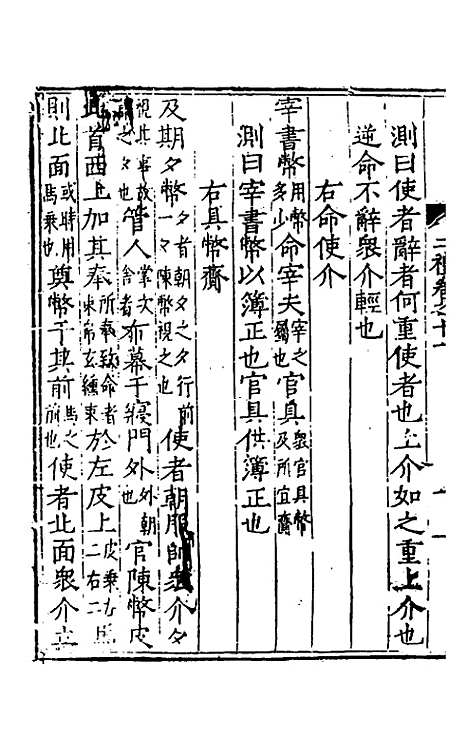 二禮卷之十一
一
測曰使者辭者何重使者也上介如之重上介也
逆命不辭衆介輕也
右命使介
宰書幣用幣多少命宰夫宰之屬也官具衆官具幣及所宜齎
測曰宰書幣以簿正也官具供簿正也
右具幣齎
及期夕幣夕者朝夕之夕行前一夕陳幣視之也使者朝服帥衆介夕
視其事故謂之夕也管人掌次舍者布幕于寢門外外朝也官陳幣皮
北首西上加其奉所奉致命者束帛玄纁束於左皮上皮乗二右二
則北面或時用馬乗也奠幣于其前馬之前也使者北面衆介立